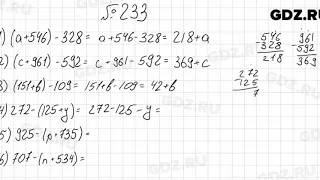 № 233
1) (a+546)-328= a+546-328=218+a
2) (c+961)-592= c+961-592=369+c
3) (151+b)-109= 151+b-109=42+b
4) 272-(125+y)= 272-125-y=
5) 925-(p+735)=
6) 707-(n+534)=
546
328
218
961
-592
369
272
125
7
GDZ.RU